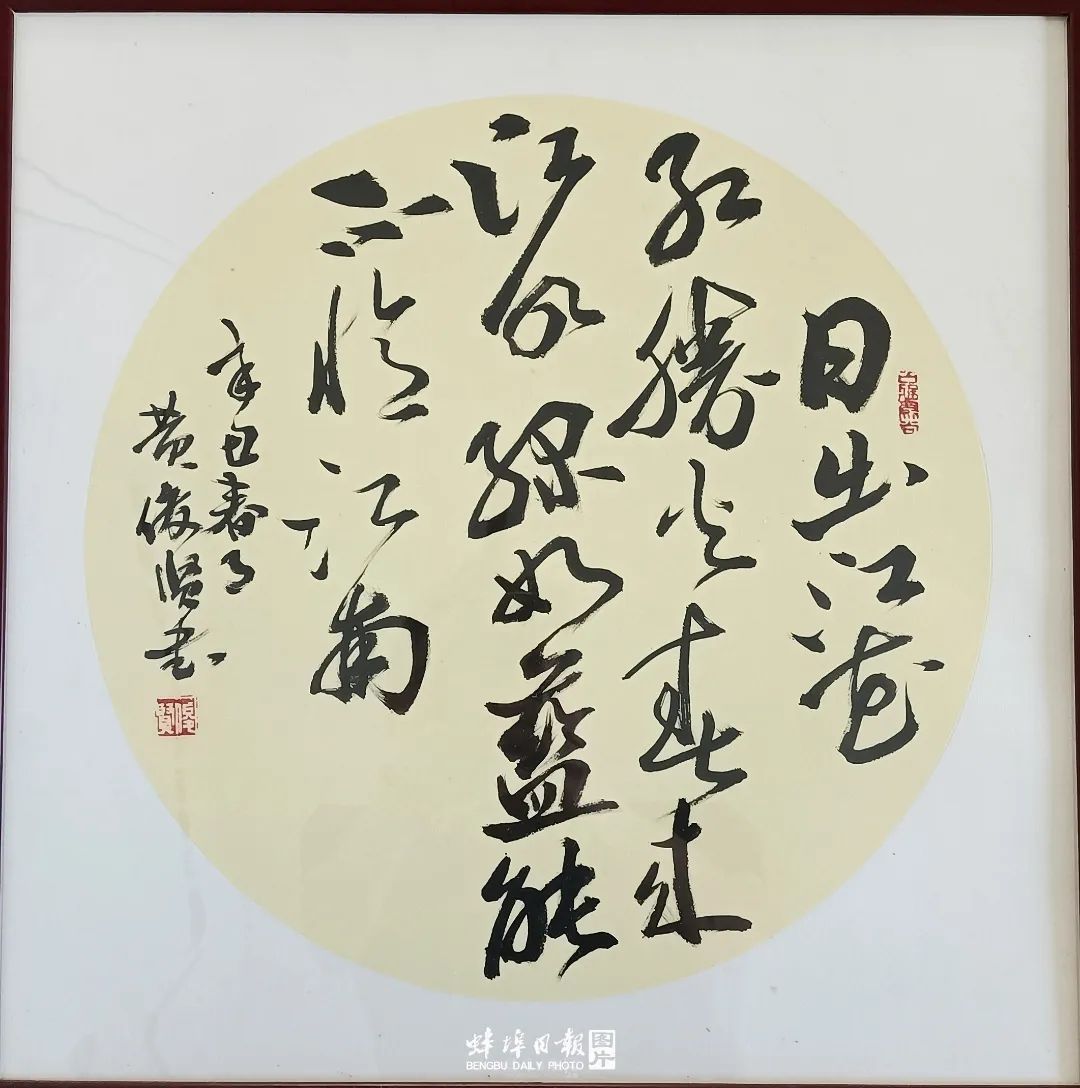 日出江花
红勝火春来
江水绿如蓝能
不憶江南
辛丑春月
黄俊贤书
俊賢
蚌埠日報 图片
BENGBU DAILY PHOTO